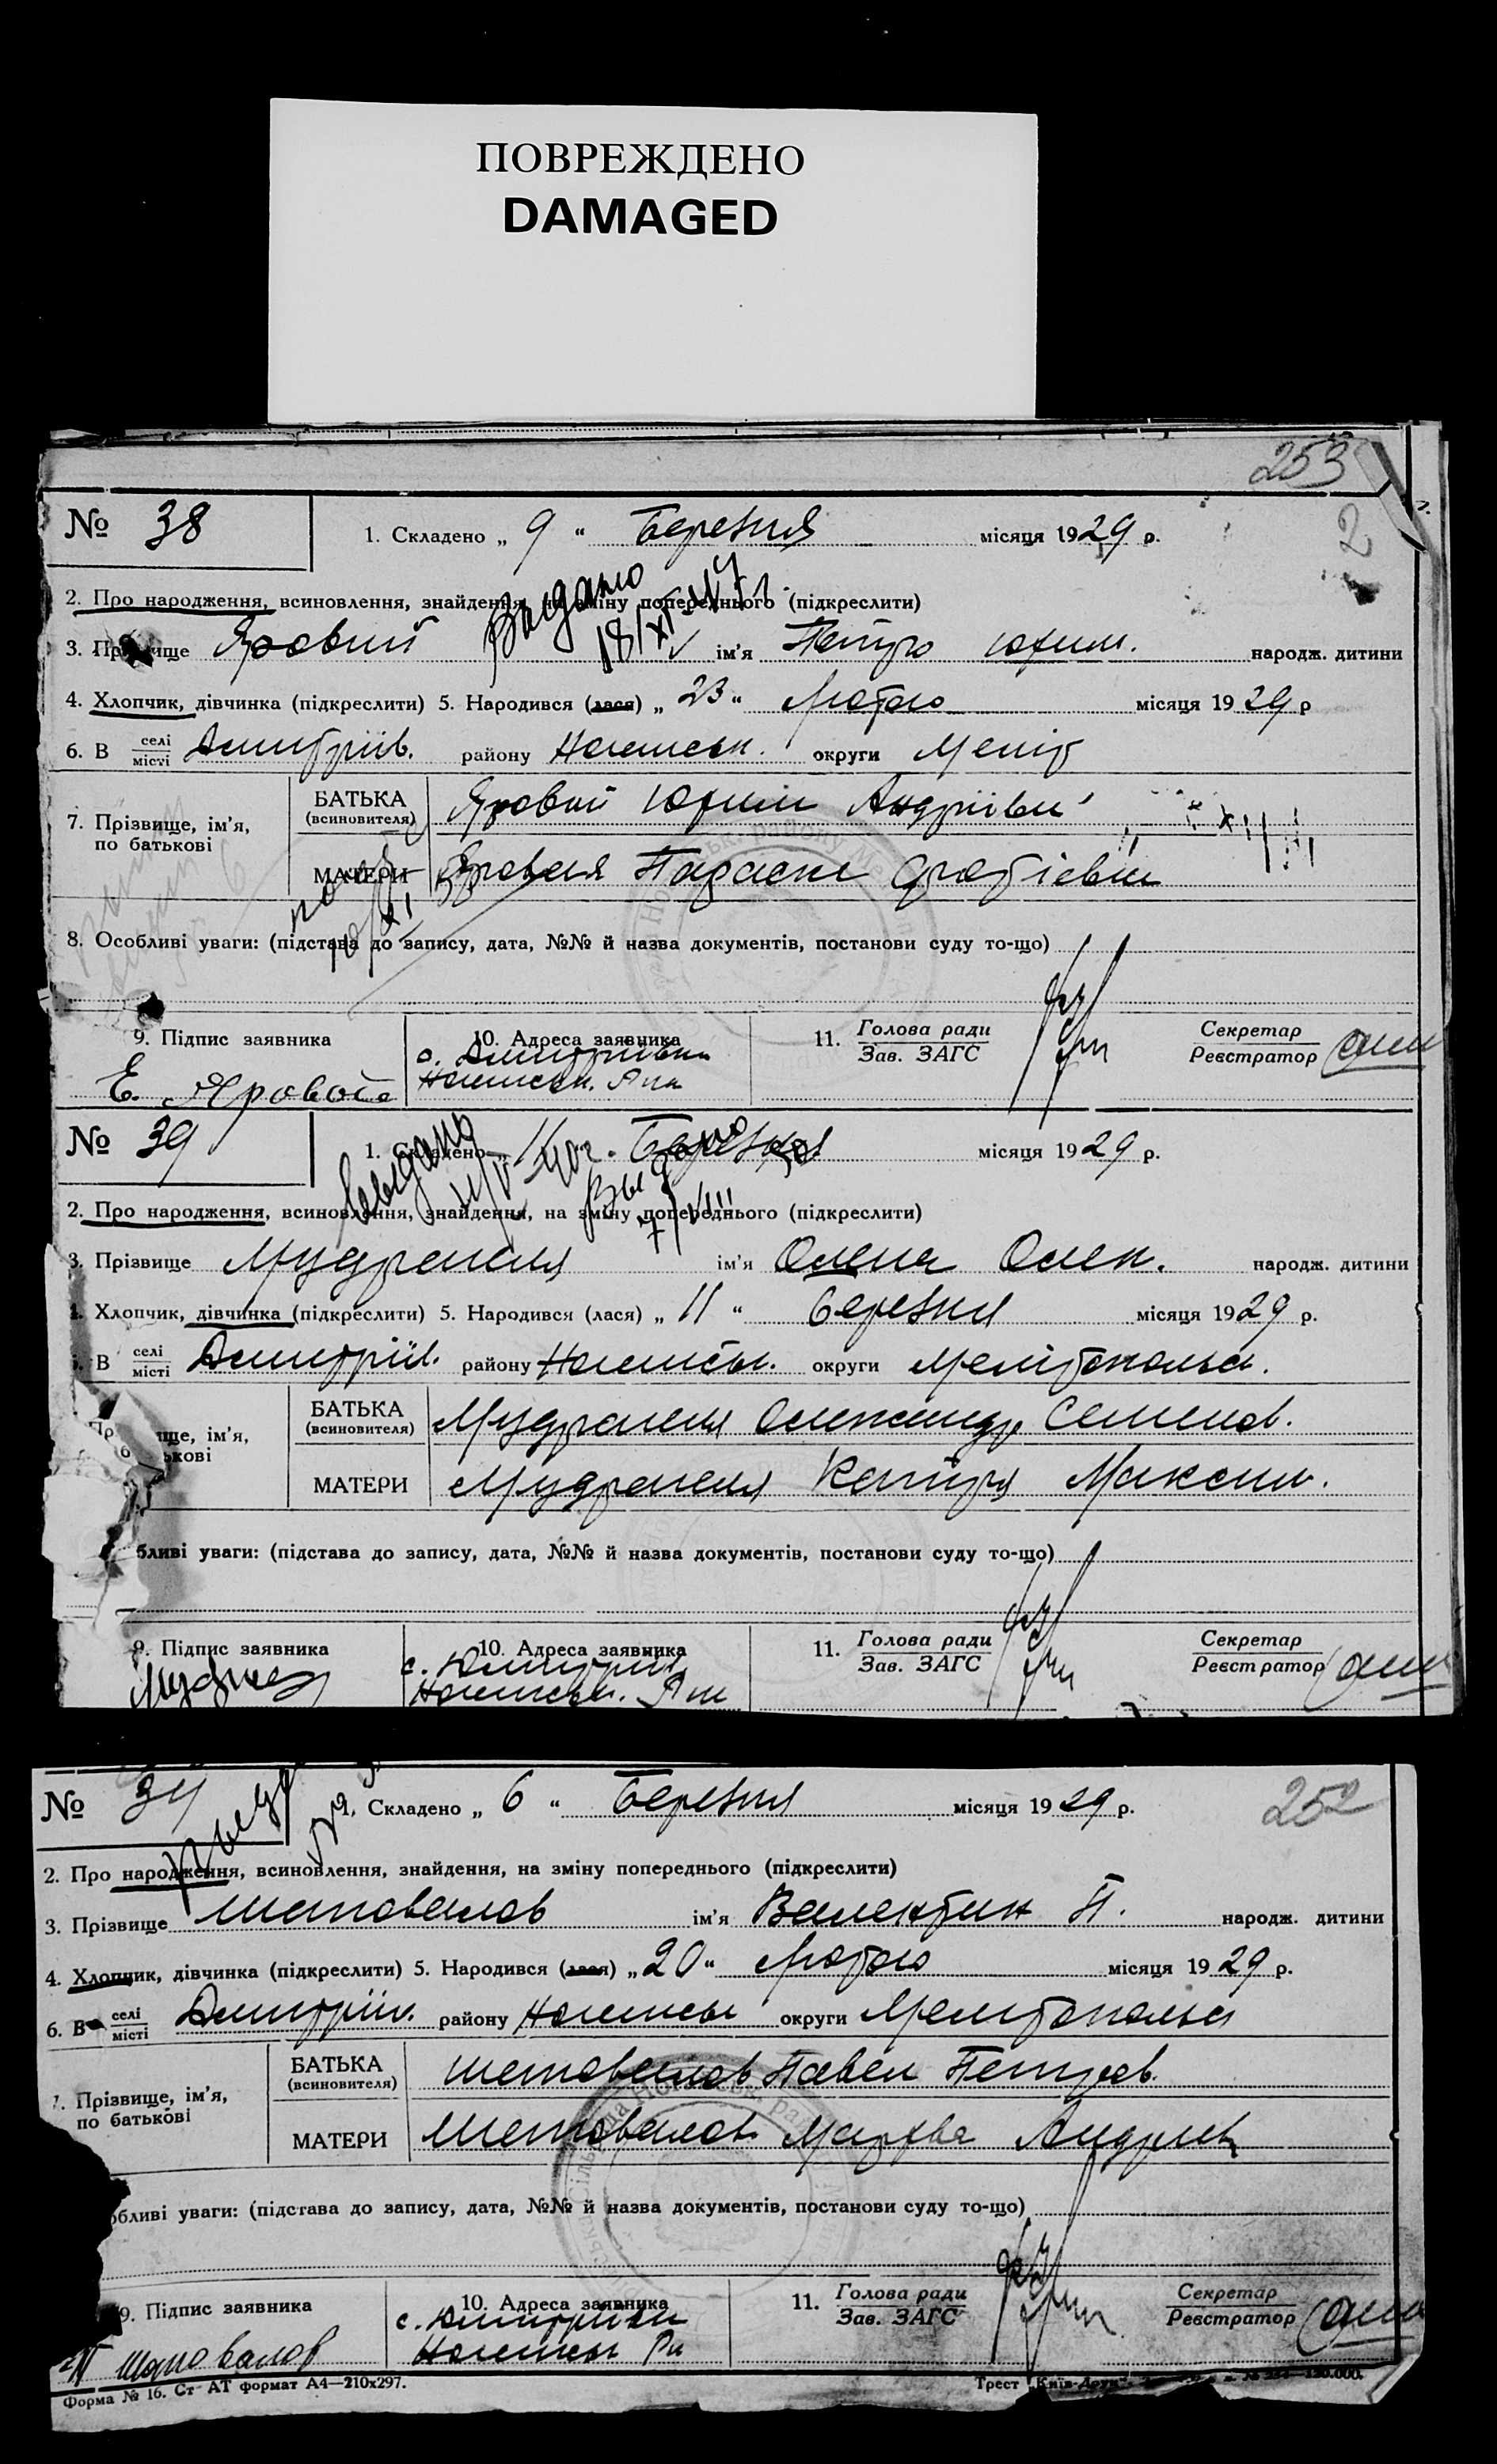 ПОВРЕЖДЕНО
DAMAGED
253
2
№ 38
1. Складено „ 9 “ Березня місяця 1929 р.
Выдано
18/XI-47 г.
2. Про народження, всиновлення, знайдення, на зміну попереднього (підкреслити)
3. Прізвище Яровий ім'я Петро Юхим. народж. дитини
4. Хлопчик, дівчинка (підкреслити) 5. Народився (лася) „ 23 “ Лютого місяця 1929 р
6. В селі місті Дмитрів. району Ногайськ. округи Меліт
7. Прізвище, ім'я, по батькові
БАТЬКА (всиновителя) Яровий Юхим Андріїви
МАТЕРИ Яровая Параска
8. Особливі уваги: (підстава до запису, дата, №№ й назва документів, постанови суду то-що)
9. Підпис заявника
Е. Яровой
10. Адреса заявника
с. Дмитрівка
Ногайськ. Рн
11. Голова ради
Зав. ЗАГС
Секретар
Реєстратор
№ 39
1. Складено 11 Березня місяця 1929 р.
Выдано
Выдано
7/VIII
2. Про народження, всиновлення, знайдення, на зміну попереднього (підкреслити)
3. Прізвище ім'я Олена Олек. народж. дитини
4. Хлопчик, дівчинка (підкреслити) 5. Народився (лася) „ 11 “ Березня місяця 1929 р.
В селі місті Дмитрів. району Ногайськ. округи Мелітопольськ.
БАТЬКА (всиновителя) Олександр Семенов.
МАТЕРИ Катря Максим.
бливі уваги: (підстава до запису, дата, №№ й назва документів, постанови суду то-що)
9. Підпис заявника
10. Адреса заявника
с. Дмитрів
Ногайськ. Рн
11. Голова ради
Зав. ЗАГС
Секретар
Реєстратор
252
№ 34
1. Складено „ 6 “ Березня місяця 1929 р.
2. Про народження, всиновлення, знайдення, на зміну попереднього (підкреслити)
3. Прізвище Шаповалов ім'я Валентин П. народж. дитини
4. Хлопчик, дівчинка (підкреслити) 5. Народився (лася) „ 20 “ Лютого місяця 1929 р.
6. В селі місті Дмитрів. району Ногайськ округи Мелітопольск
7. Прізвище, ім'я, по батькові
БАТЬКА (всиновителя) Шаповалов Павел Петров.
МАТЕРИ Шаповалов Марфа Андріев
обливі уваги: (підстава до запису, дата, №№ й назва документів, постанови суду то-що)
9. Підпис заявника
Шаповалов
10. Адреса заявника
с. Дмитрівки
Ногайськ Рн
11. Голова ради
Зав. ЗАГС
Секретар
Реєстратор
Форма № 16. Ст АТ формат А4—210х297.
Трест „Київ-Друк“